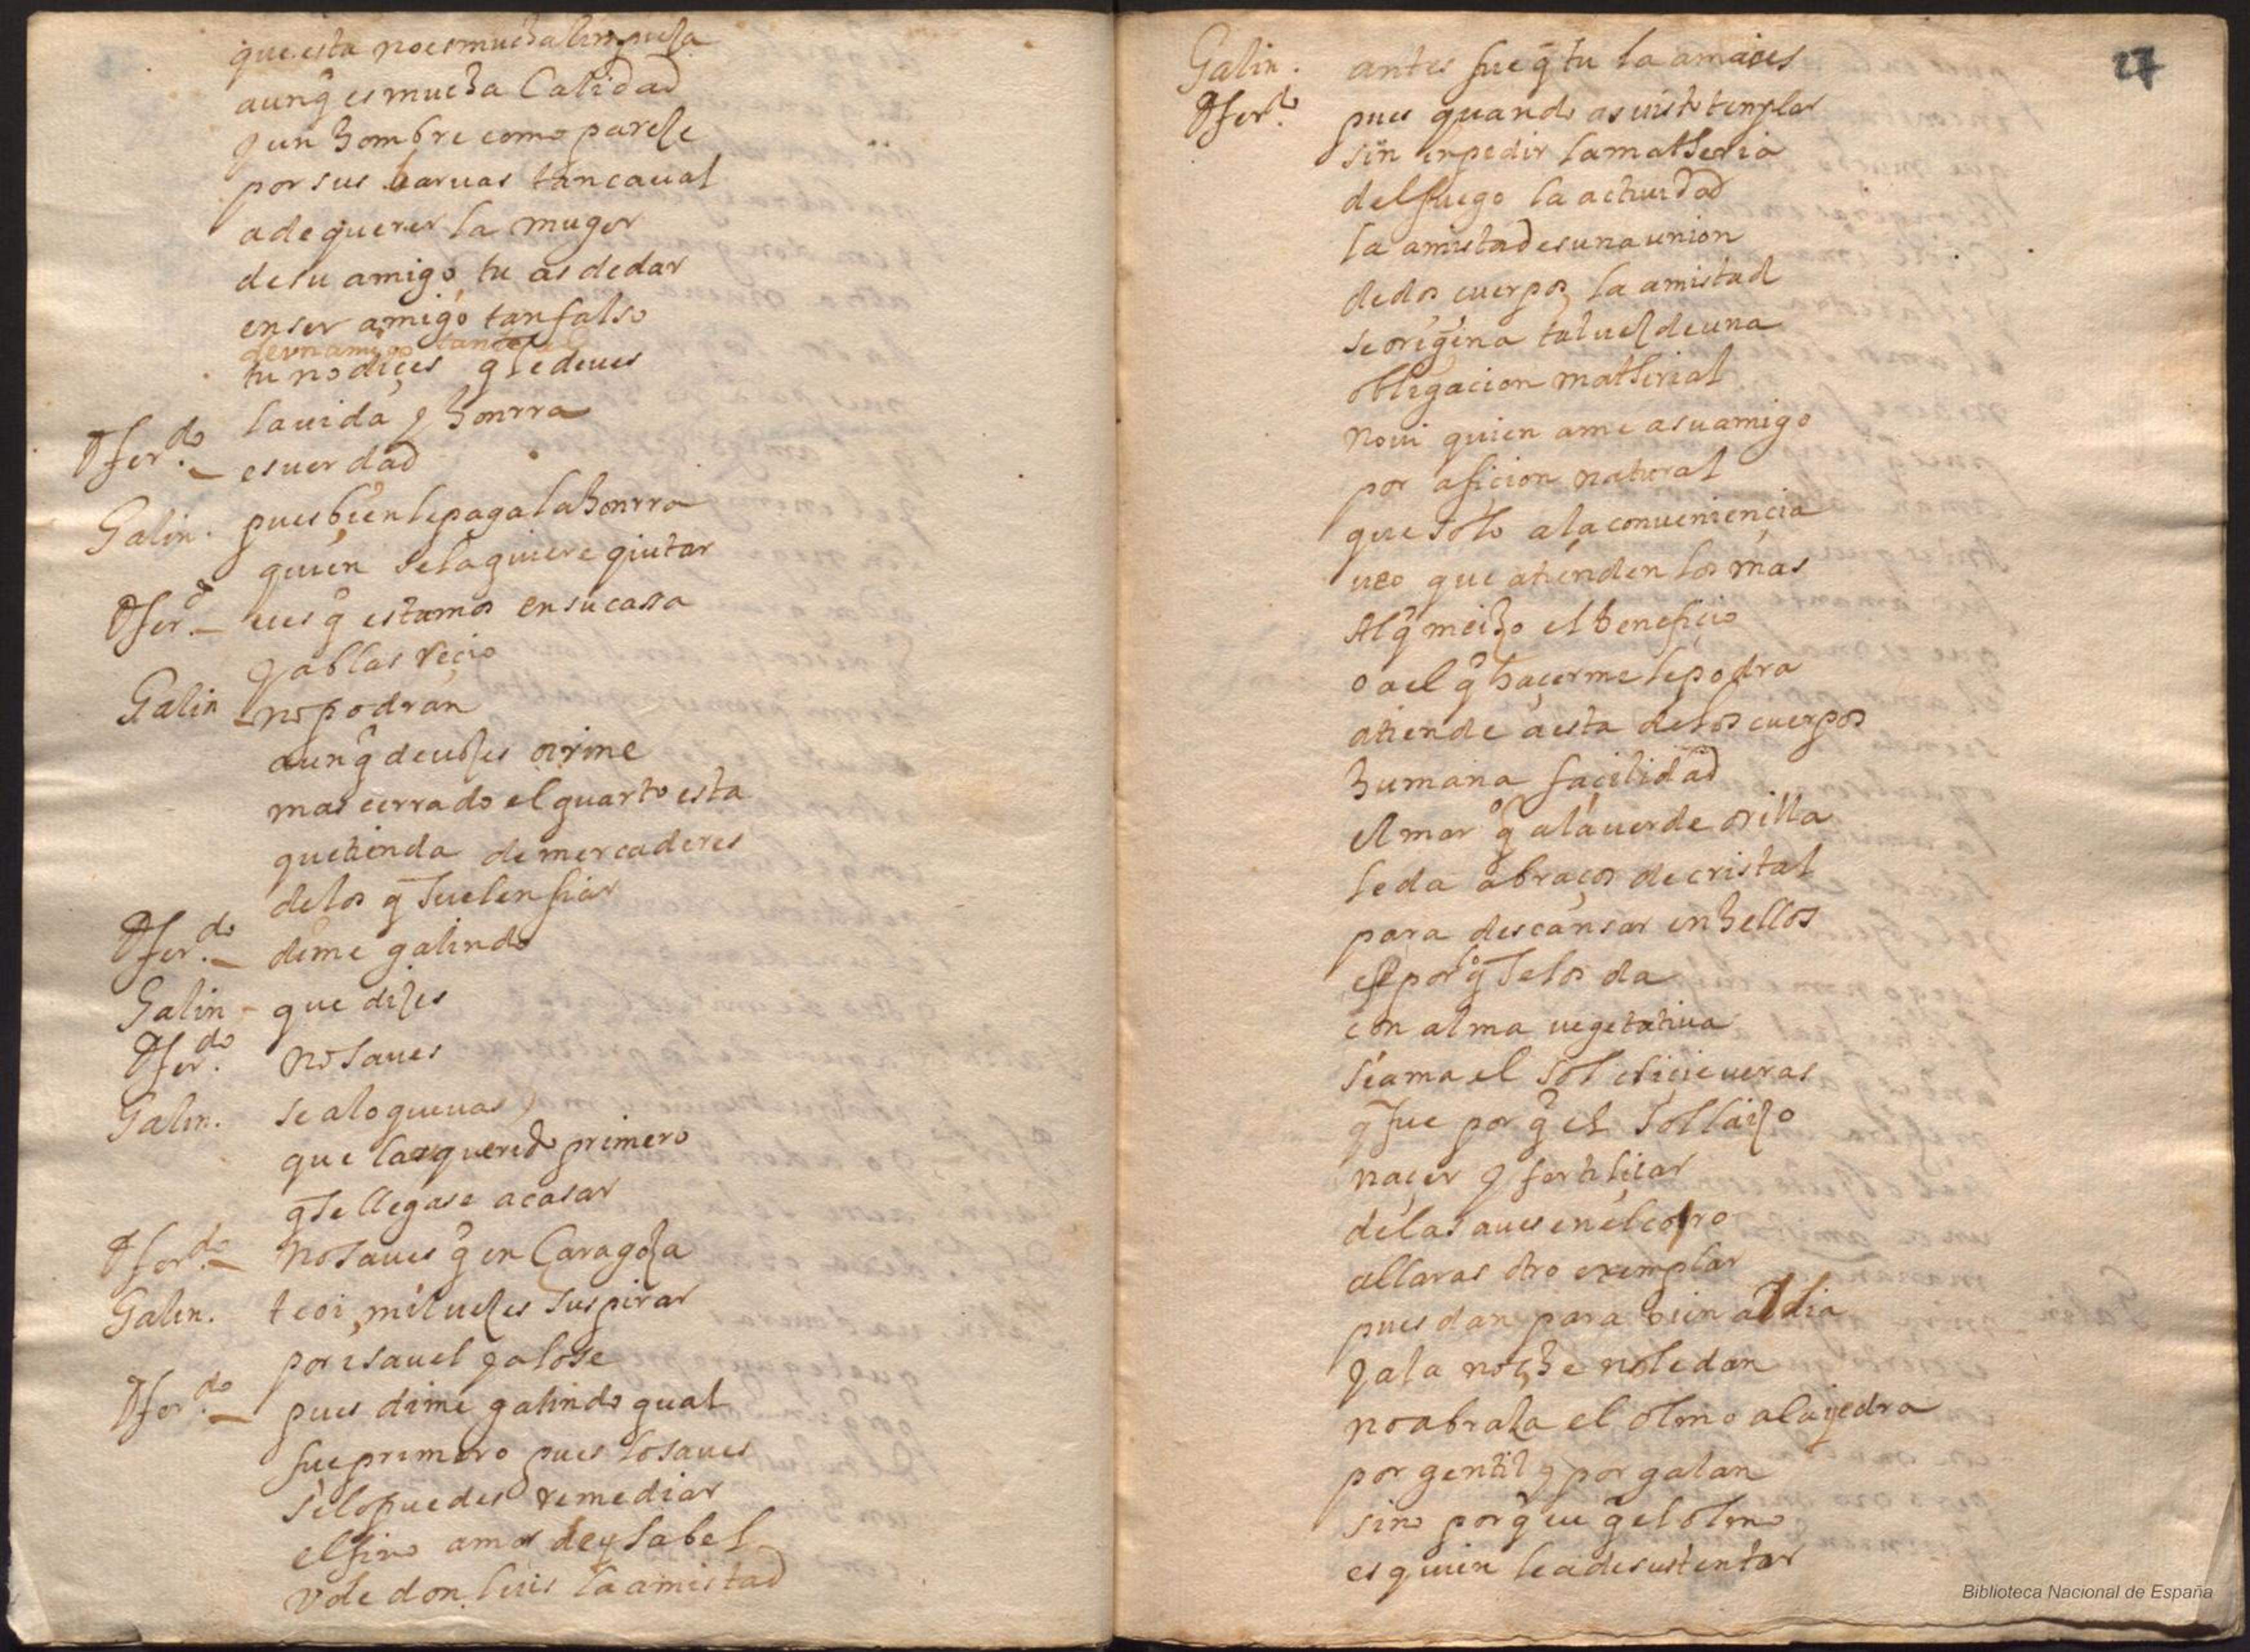 que esta no es mucha limpieza
aunq̃ es mucha Calidad
y un hombre como pareze
por sus barvas tan caval
a de querer la muger
de su amigo, tu as de dar
en ser amigo tan falso
de vn amigo
tu no dices q̃ le deves
la vida y honrra
D fer.do es verdad
Galin. pues bien le paga la honrra
quien se la quiere quitar
D fer.do ves q̃ estamos en su cassa
y ablas recio
Galin no podran
aunq̃ de vozes oirme
mas cerrado el quarto esta
que tienda de mercaderes
de los q̃ suelen fiar
D fer.do dime galindo
Galin que dizes
D fer.do no saves
Galin. se a lo que vas
que las querido primero
q̃ se llegase a casar
D fer.do no saves q̃ en Çaragoza
Galin. te oi mil vezes suspirar
por isavel y a lo se
D fer.do pues dime galindo qual
fue primero pues lo saves
si lo puedes remediar
el fino amor de ysabel
v de don luis la amistad
27
Galin. antes fue q̃ tu la amases
D fer.do pues quando as visto templar
sin enpedir la matheria
del fuego la actividad
la amistad es una union
de dos cuerpos, la amistad
se origina tal vez de una
obligacion matherial
no vi quien ame a su amigo
por aficion natural
que solo a la conveniencia
veo que atienden los mas
Al q̃ me izo el beneficio
o a el q̃ haçerme le podra
atiende a esta de los cuerpos
humana façilidad
el mar q̃ a la verde orilla
le da abraços de cristal
para descansar en hellos
es por q̃ se los da
con alma vegetativa
si ama el sol
q̃ fue por q̃ el sol la izo
naçer y fertiliçar
de las aves en el coro
allaras otro exemplar
pues dan para bien al dia
y a la noche no le dan
no abraza el olmo a la yedra
por gentil y por galan
sino por q̃ ve q̃ el olmo
es quien le a de sustentar
Biblioteca Nacional de España